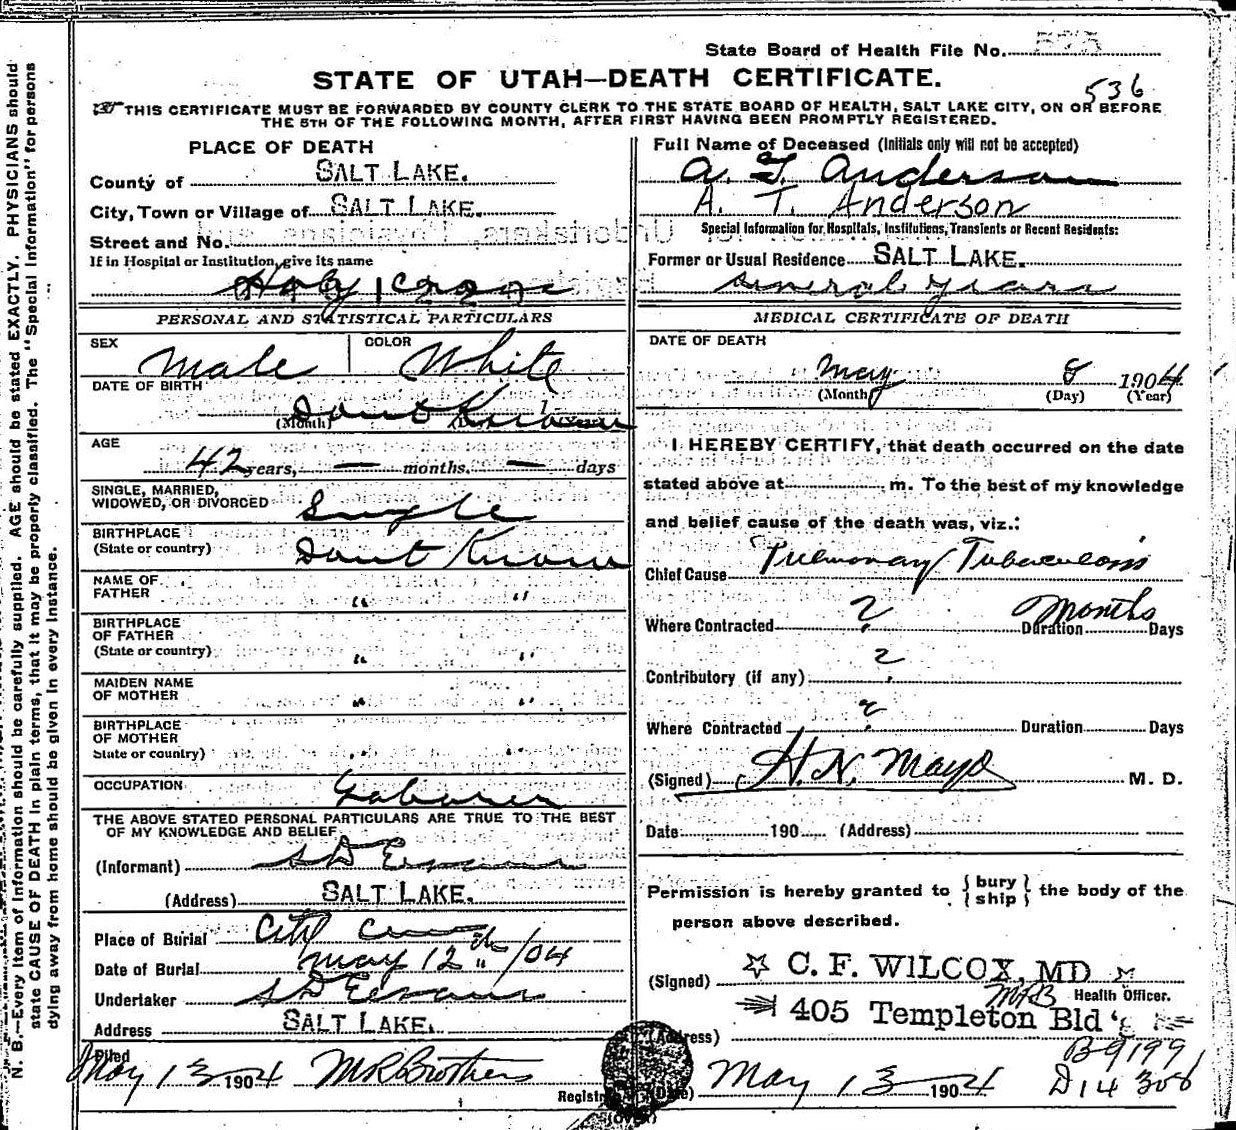 State Board of Health File No.
STATE OF UTAH—DEATH CERTIFICATE.
536
THIS CERTIFICATE MUST BE FORWARDED BY COUNTY CLERK TO THE STATE BOARD OF HEALTH, SALT LAKE CITY, ON OR BEFORE
THE 5TH OF THE FOLLOWING MONTH, AFTER FIRST HAVING BEEN PROMPTLY REGISTERED.
PLACE OF DEATH
County of SALT LAKE.
City, Town or Village of SALT LAKE.
Street and No.
If in Hospital or Institution, give its name
Holy Cross
PERSONAL AND STATISTICAL PARTICULARS
SEX Male COLOR White
DATE OF BIRTH
Dont Know
(Month)
AGE
42 years, — months, — days
SINGLE, MARRIED,
WIDOWED, OR DIVORCED Single
BIRTHPLACE
(State or country) Dont Know
NAME OF
FATHER " "
BIRTHPLACE
OF FATHER
(State or country) " "
MAIDEN NAME
OF MOTHER " "
BIRTHPLACE
OF MOTHER
State or country) " "
OCCUPATION Laborer
THE ABOVE STATED PERSONAL PARTICULARS ARE TRUE TO THE BEST
OF MY KNOWLEDGE AND BELIEF
(Informant) S D Evans
(Address) SALT LAKE.
Place of Burial City Cem
Date of Burial May 12th /04
Undertaker S D Evans
Address SALT LAKE.
Filed
May 13 1904 M R Brothers
Registrar
Full Name of Deceased (Initials only will not be accepted)
A. T. Anderson
A. T. Anderson
Special Information for Hospitals, Institutions, Transients or Recent Residents:
Former or Usual Residence SALT LAKE.
several years
MEDICAL CERTIFICATE OF DEATH
DATE OF DEATH
May 8 1904
(Month) (Day) (Year)
I HEREBY CERTIFY, that death occurred on the date
stated above at m. To the best of my knowledge
and belief cause of the death was, viz.:
Chief Cause Pulmonary Tuberculosis
Where Contracted ? Duration Months Days
Contributory (if any) ?
Where Contracted ? Duration Days
(Signed) H. N. Mayo M. D.
Date 190 (Address)
Permission is hereby granted to {bury ship} the body of the
person above described.
(Signed) C. F. WILCOX, MD
MRB Health Officer.
(Address) 405 Templeton Bld'g
B 9199
(Date) May 13 1904 D 14 306
(OVER)
N. B.—Every item of information should be carefully supplied. AGE should be stated EXACTLY. PHYSICIANS should
state CAUSE OF DEATH in plain terms, that it may be properly classified. The "Special Information" for persons
dying away from home should be given in every instance.